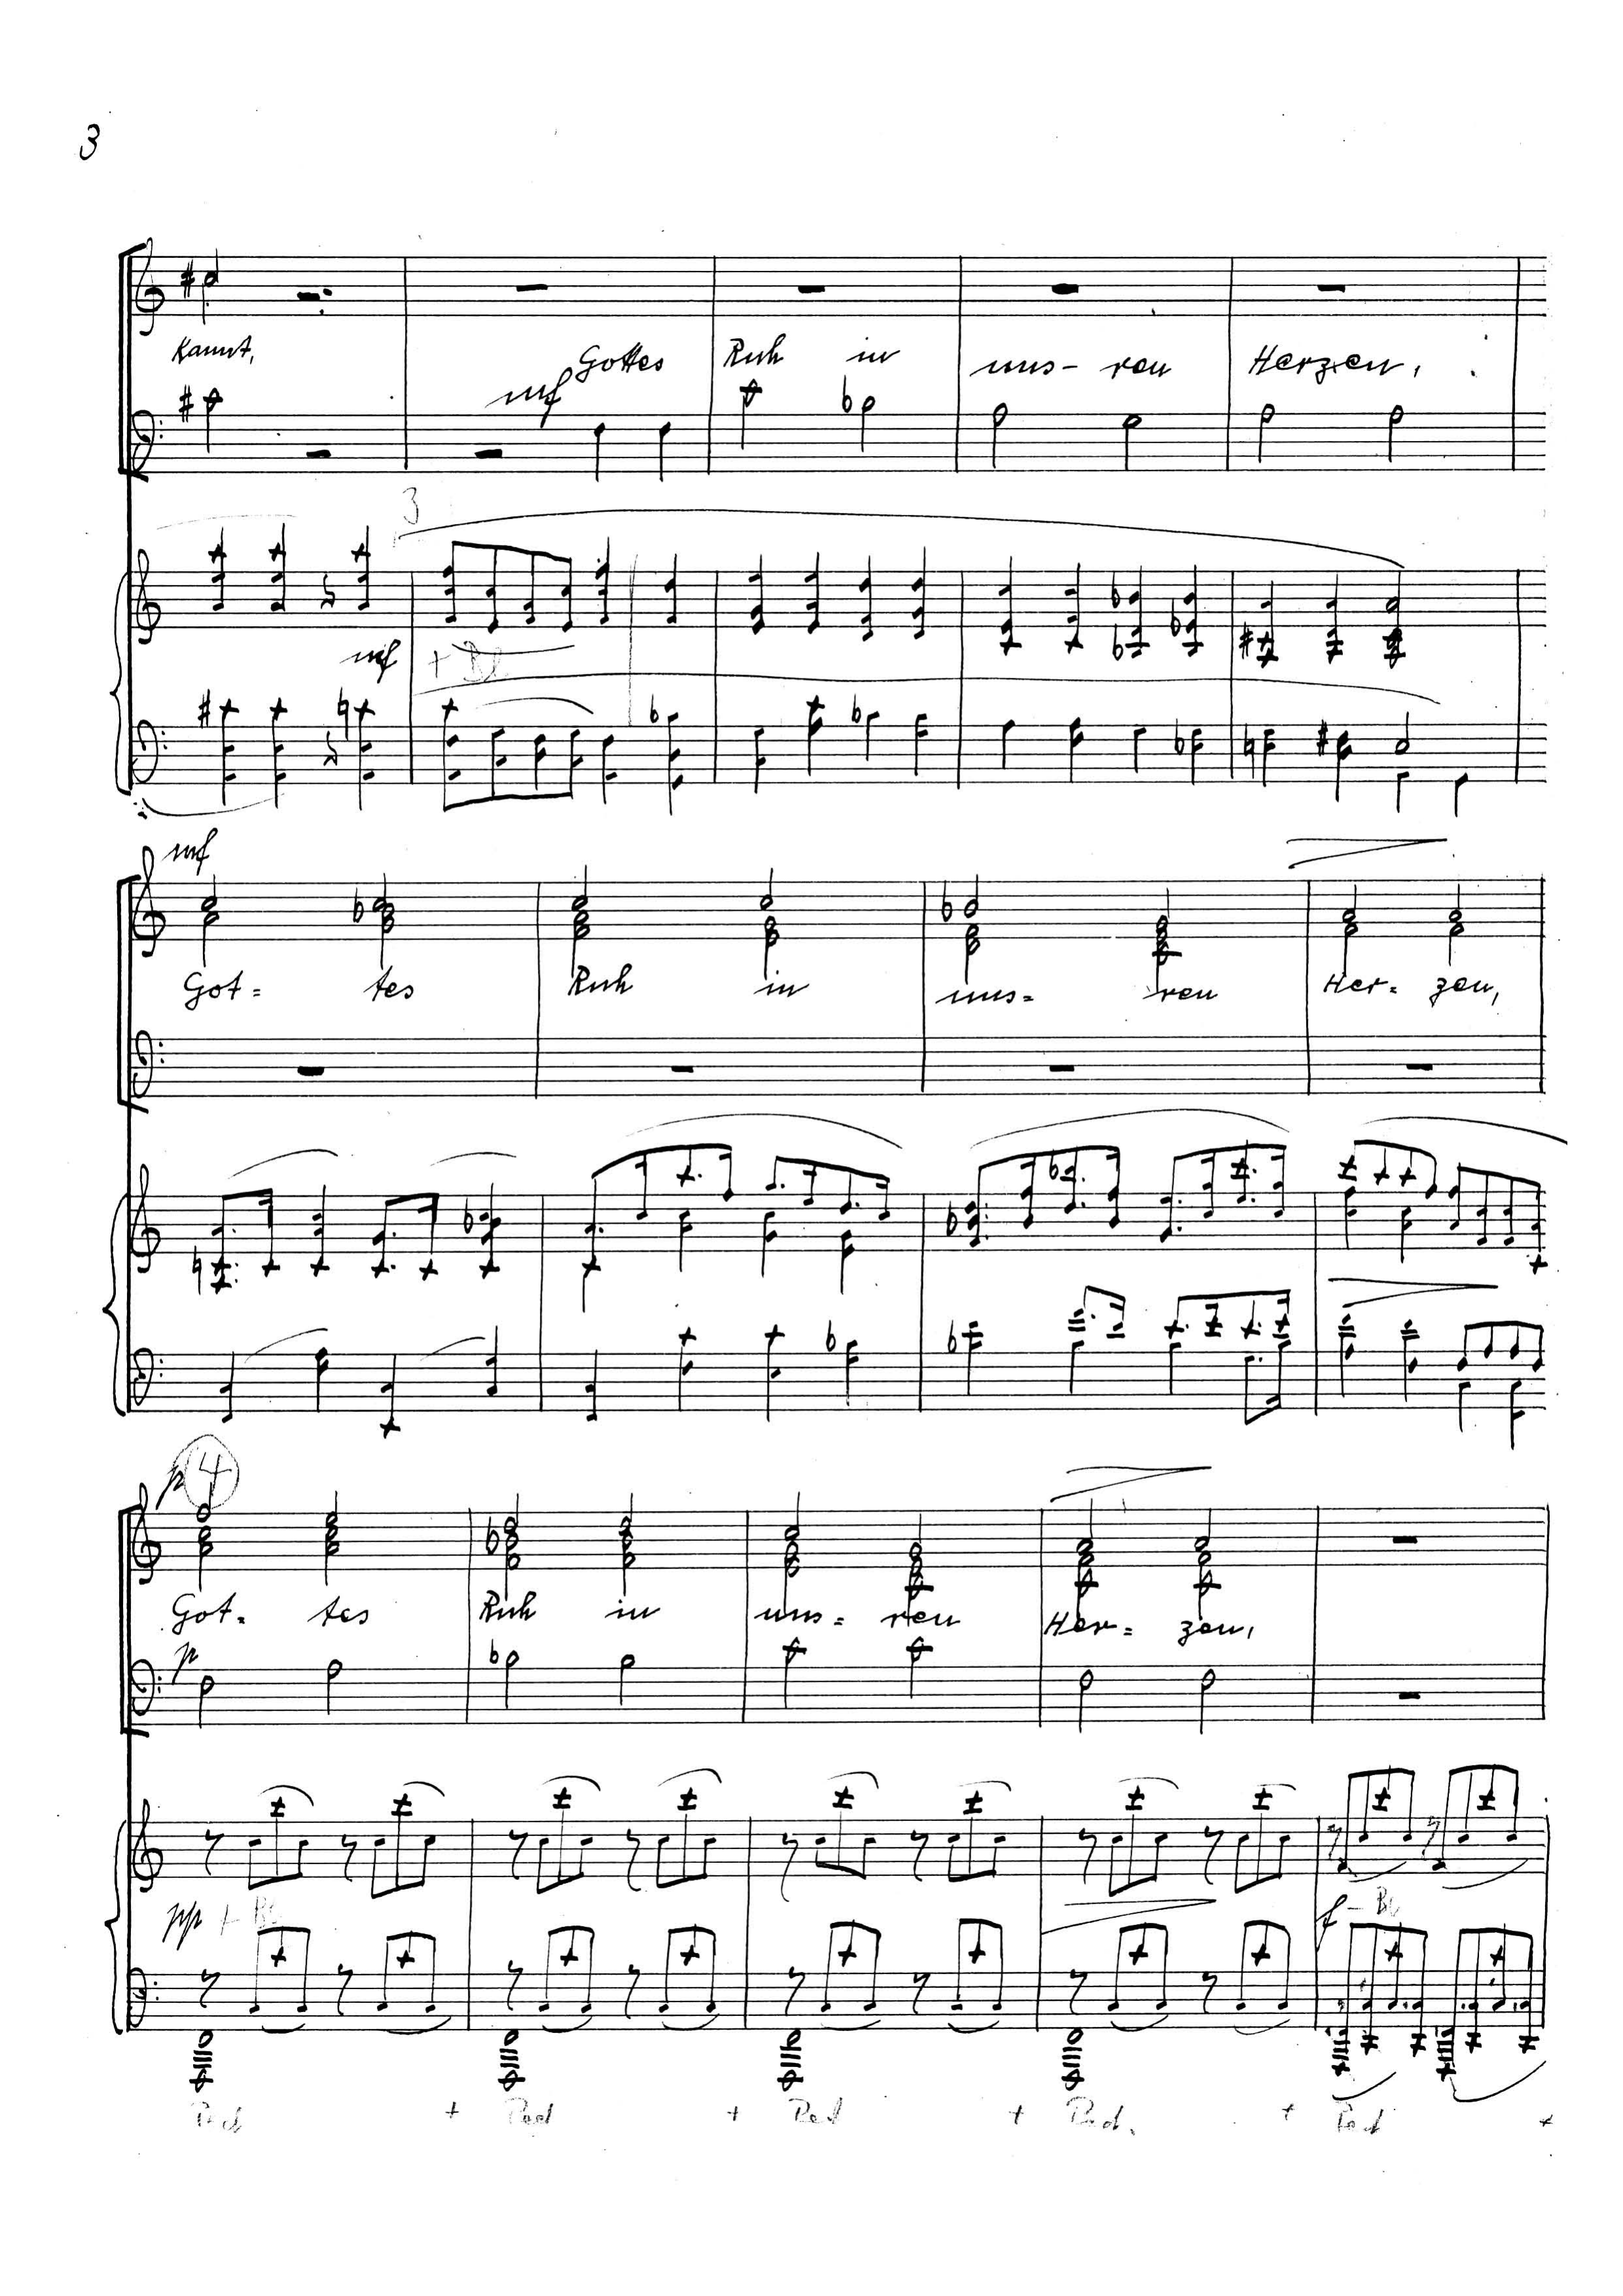 3
Kannt,
mf Gottes Ruh in uns- ren Herzen,
3
mf + Bl
mf
Got= tes Ruh in uns= ren Her= zen,
p 4
Got= tes Ruh in uns= ren Her= zen,
p
pp + Bl f - Bl
Ped + Ped + Ped + Ped. + Ped +